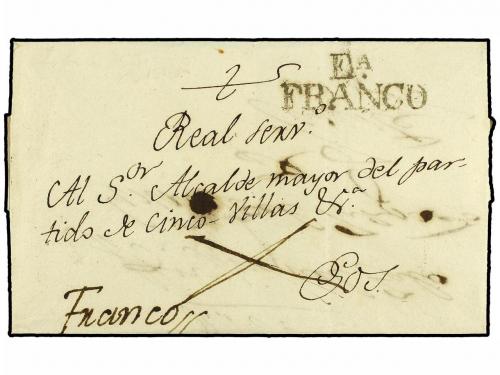 Eᴬ
FRANCO
Real serv.º
Al S.ᵒʳ Alcalde mayor del par-
tido de Cinco Villas &ᵃ
Sos
Franco